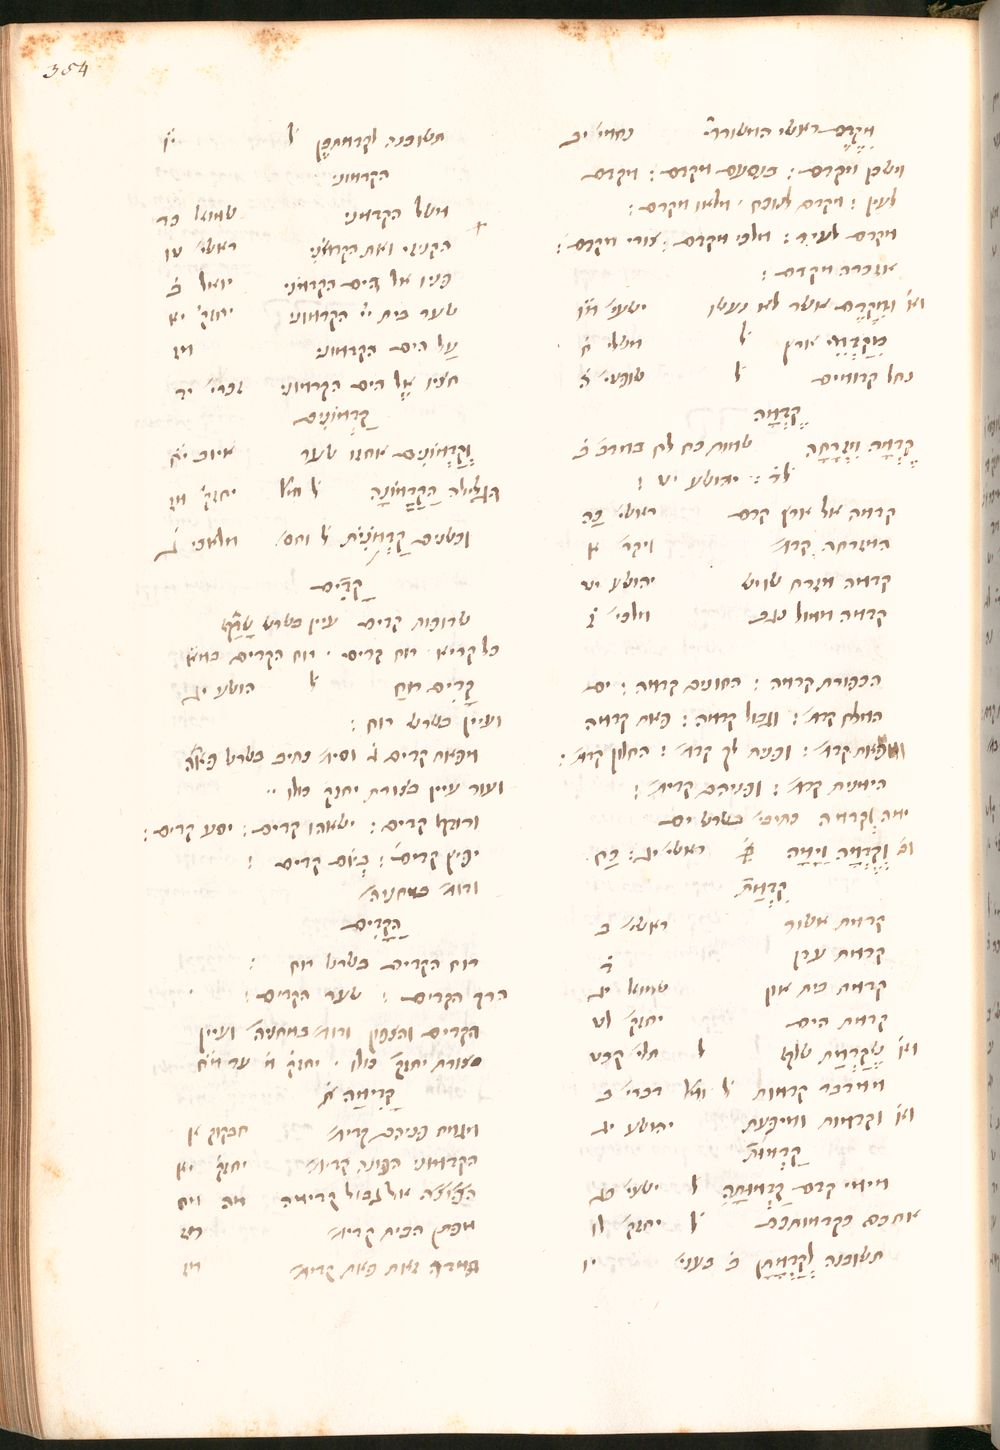 354
מִקֶּדֶם ראשי המשוררי נחמי׳ יב
וישכן מקדם : בנסעם מקדם : מקדם
לעין : מקדם לעוכח · מלאו מקדם :
מקדם לעיר : מלכי מקדם : צורי מקדם :
אזכרה מקדם :
וא׳ וּמִקֶּדֶם אשר לא נעשו ישעי׳ מו
מִקַּדְמֵי ארץ ל משלי ח
נחל קדומים ל שופטי׳ ה
קֵדְמָה
קֵדְמָה וּמִזְרָחָה
יהושע יט :
קדמה אל ארץ קדם ראשי׳ כה
המזרחה קדמ׳ ויקר׳ א
קדמה מזרח שמש יהושע יט
קדמה ממול נגב מלכי׳ ז
הכפורת קדמה : החונים קדמה : ים
המלח קדמ׳ : וגבול קדמה : פאת קדמה
ופאת קדמ׳ : ופנית לך קדמ׳ : החלון קדמ׳ :
הימנית קדמ׳ : ופניהם קדמה :
ימה וקדמה כתיבי׳ בשרש ים
וָקֵדְמָה וָיָמָּה ראשי׳ יג : כח
קִדְמַת
קדמת אשור ראשי׳ ב
קדמת עדן ד
קדמת בית און שמואל יג
קדמת הים יחזק׳ לט
וא׳ שֶׁקַּדְמַת שלף ל תלי׳ קכט
ממדבר קדמות ל ומל׳ דברי׳ ב
וא׳ וקדמות ומיפעת יהושע יג
קַדְמוּת
מימי קדם קַדְמָתָהּ ל ישעי׳ כג
אתכם כקדמותכם ל יחזק׳ לו
תשובנה לְקַדְמָתָן ב׳ בעני׳ יו
תשובנה לקדמתכן ל יו
הקדמוני
משל הקדמני שמואל כד
הקניזי ואת הקדמני ראשי׳ טו
פניו אל הים הקדמני יואל ב
שער בית יי׳ הקדמוני יחזק׳ יא
עַל הים הקדמוני מז
חציו אֶל הים הקדמוני זכרי׳ יד
קַדְמוֹנִים
וְקַדְמֹנִים אחזו שער איוב יח
הגלילה הַקַּדְמוֹנָה ל חס׳ יחזק׳ מז
וכשנים קַדְמֹנִיּוֹת ל וחס׳ מלאכי ג
קָדִים
שדופות קדים עיין בשרש שָׁדַף
כל קריא׳ רוח קדים · רוח הקדים במא׳
קָדִים רוּחַ ל הושע יג
ועיין בשרש רוח :
מפאת קדים ל׳ וסימ׳ כתיב בשרש פאה
ועוד עיין בצורת יחזק׳ כולו ··
ורודף קדים : ישאהו קדים : יסע קדים :
יפיץ קדים : בְּיוֹם קדים :
ודומ׳ במחניה׳
הַקָּדִים
רוח הקדים בשרש רוח :
הדרך הקדים : שער הקדים :
הקדים והצפון ודומ׳ במחניה׳ ועיין
בצורת יחזק׳ כולו · יחזק׳ מ׳ עד מ״ח
קָדִימָה
ומגמת פניהם קדימ׳ חבקוק א
הקדמוני הפונה קדימ׳ יחזק׳ יא
אל גבול קדימה מה ומח
מפתן הבית קדימ׳ מז
וזאת פאת קדימ׳ מז